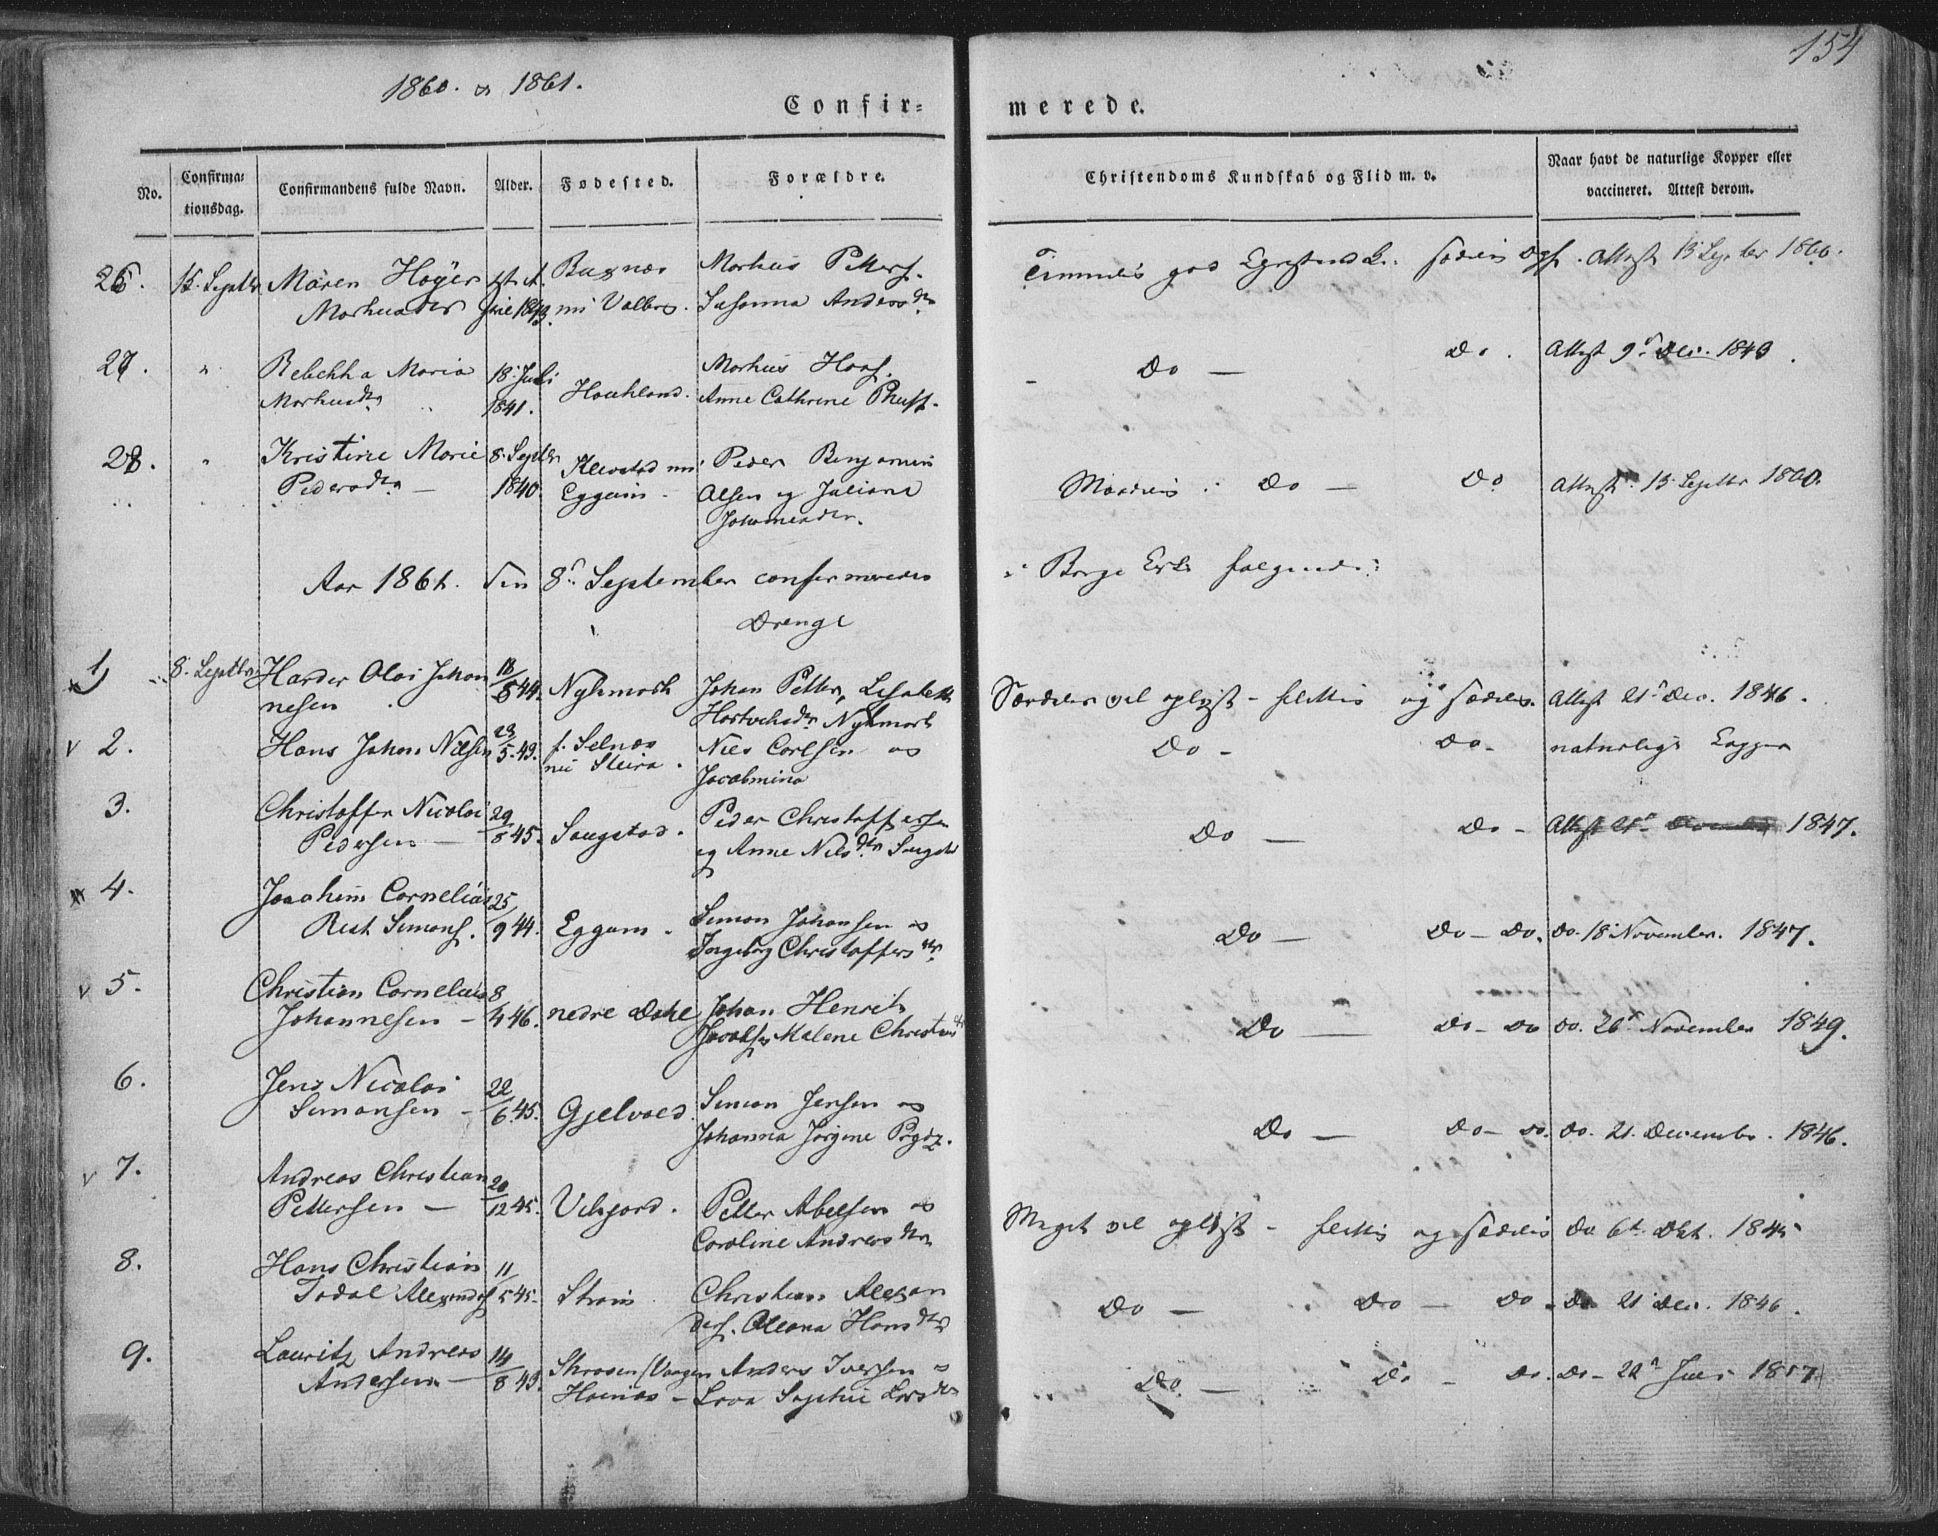 154
1860. & 1861.
Confir= merede.
No.
Confirma=
tionsdag.
Confirmandens fulde Navn.
Alder.
Fødested.
Forældre.
Christendoms Kundskab og Flid m. v.
Naar havt de naturlige Kopper eller
vaccineret. Attest derom.
26. 15. Septbr Maren Høyer Buxnæs Markus Petters. god sædelig Attest 15 Septbr 1860.
Markusdtr 1843. nu Valberg. Susanna Andersdtr
27. " Rebekka Maria 18. Juli Markus Haas. Do — Do. Attest 9d Dec. 1843.
Markusdtr 1841. Haukland. Anne Cathrine
28. " Kristine Marie 8. Septbr Klevstad nu Peder Benjamin
Pedersdtr — 1840. Eggum. Olsen og Juliane Do — Do Attest 15 Septbr 1860.
Johannesdtr.
Aar 1861. den 8d September confirmeredes i Borge Kirke følgende:
Drenge
1) 8. Septbr. Harder Olai Johan 18/8 44. Nykmark Johan Petter, Lisabeth Særdeles vel oplyst — flittig og sædelig. Attest 21d Dec. 1846.
nesen Hartviksdtr Nykmark
2. Hans Johan Nilsen 23/5 43. f. Selnæs Niels Carlsen og Do — Do — naturlige Kopper
nu Steira. Jacobmina
3. Christoffer Nicolai 29 Peder Christoffersen
Pedersen — 8 45. Saugstad. og Anne Nilsdtr Saugstad Do — Do — Attest 21d 1847.
4. Joachim Cornelius 25 Simon Johansen og
Rist Simons. 9 44. Eggum. Ingeborg Christoffersdtr. Do — Do — Do. Do. 18 November. 1847.
5. Christian Cornelius 8
Johannesen — 4 46. nedre Dahl Johan Henrik Do — Do — Do Do. 26d November 1849.
Jacobs. Malene Christensdtr
6. Jens Nicolai 22 Simon Jensen og
Simonsen — 6 45. Gjelvold Johanna Jørgine Do — Do — Do. Do. 21. December. 1846.
7. Andreas Christian 20
Pettersen — 12 45. Vikjord. Petter Abelsen og Meget vel oplyst — flittig og sædelig Do 6t Okt. 1845
Caroline Andreasdtr
8. Hans Christian 11 Christian Alexan
Alexanders. 5 45. Strøm ders. Oleana Hansdtr Do — Do — Do. Do 21 Dec. 1846.
9. Lauritz Andreas 14 (Vaagen Anders Iversen og
Andersen — 8 43. Lava Sophie Larsdtr Do. — Do — Do. Do — 22d 1857